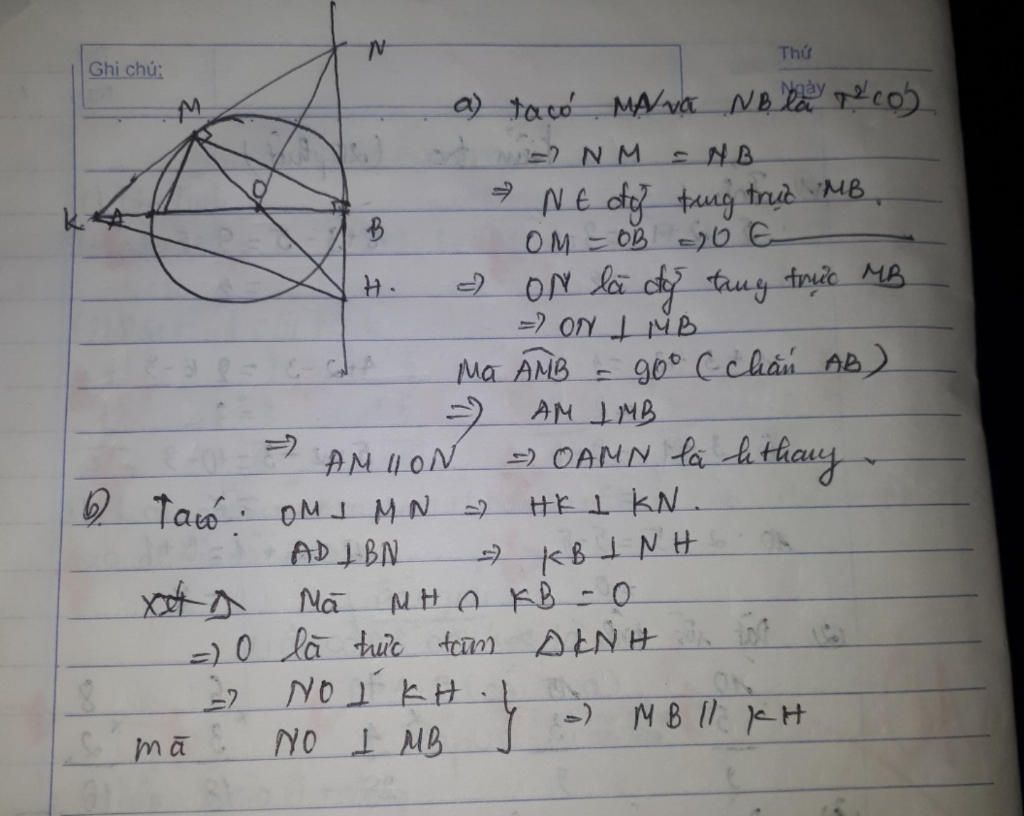 Ghi chú:
Thứ
Ngày
N
M
K A O B
H.
a) Ta có MN và NB là T²(O)
=> NM = NB
=> N ∈ đg̃ tung trực MB.
OM = OB => O ∈
=> ON là đg̃ tung trực MB
=> ON ⊥ MB
Mà AMB = 90° (chắn AB)
=> AM ⊥ MB
=> AM // ON => OAMN là h thang
b) Ta có: OM ⊥ MN => HK ⊥ KN.
AD ⊥ BN => KB ⊥ NH
Mà MH ∩ KB = O
=> O là trực tâm Δ KNH
=> NO ⊥ KH. } => MB // KH
mà NO ⊥ MB